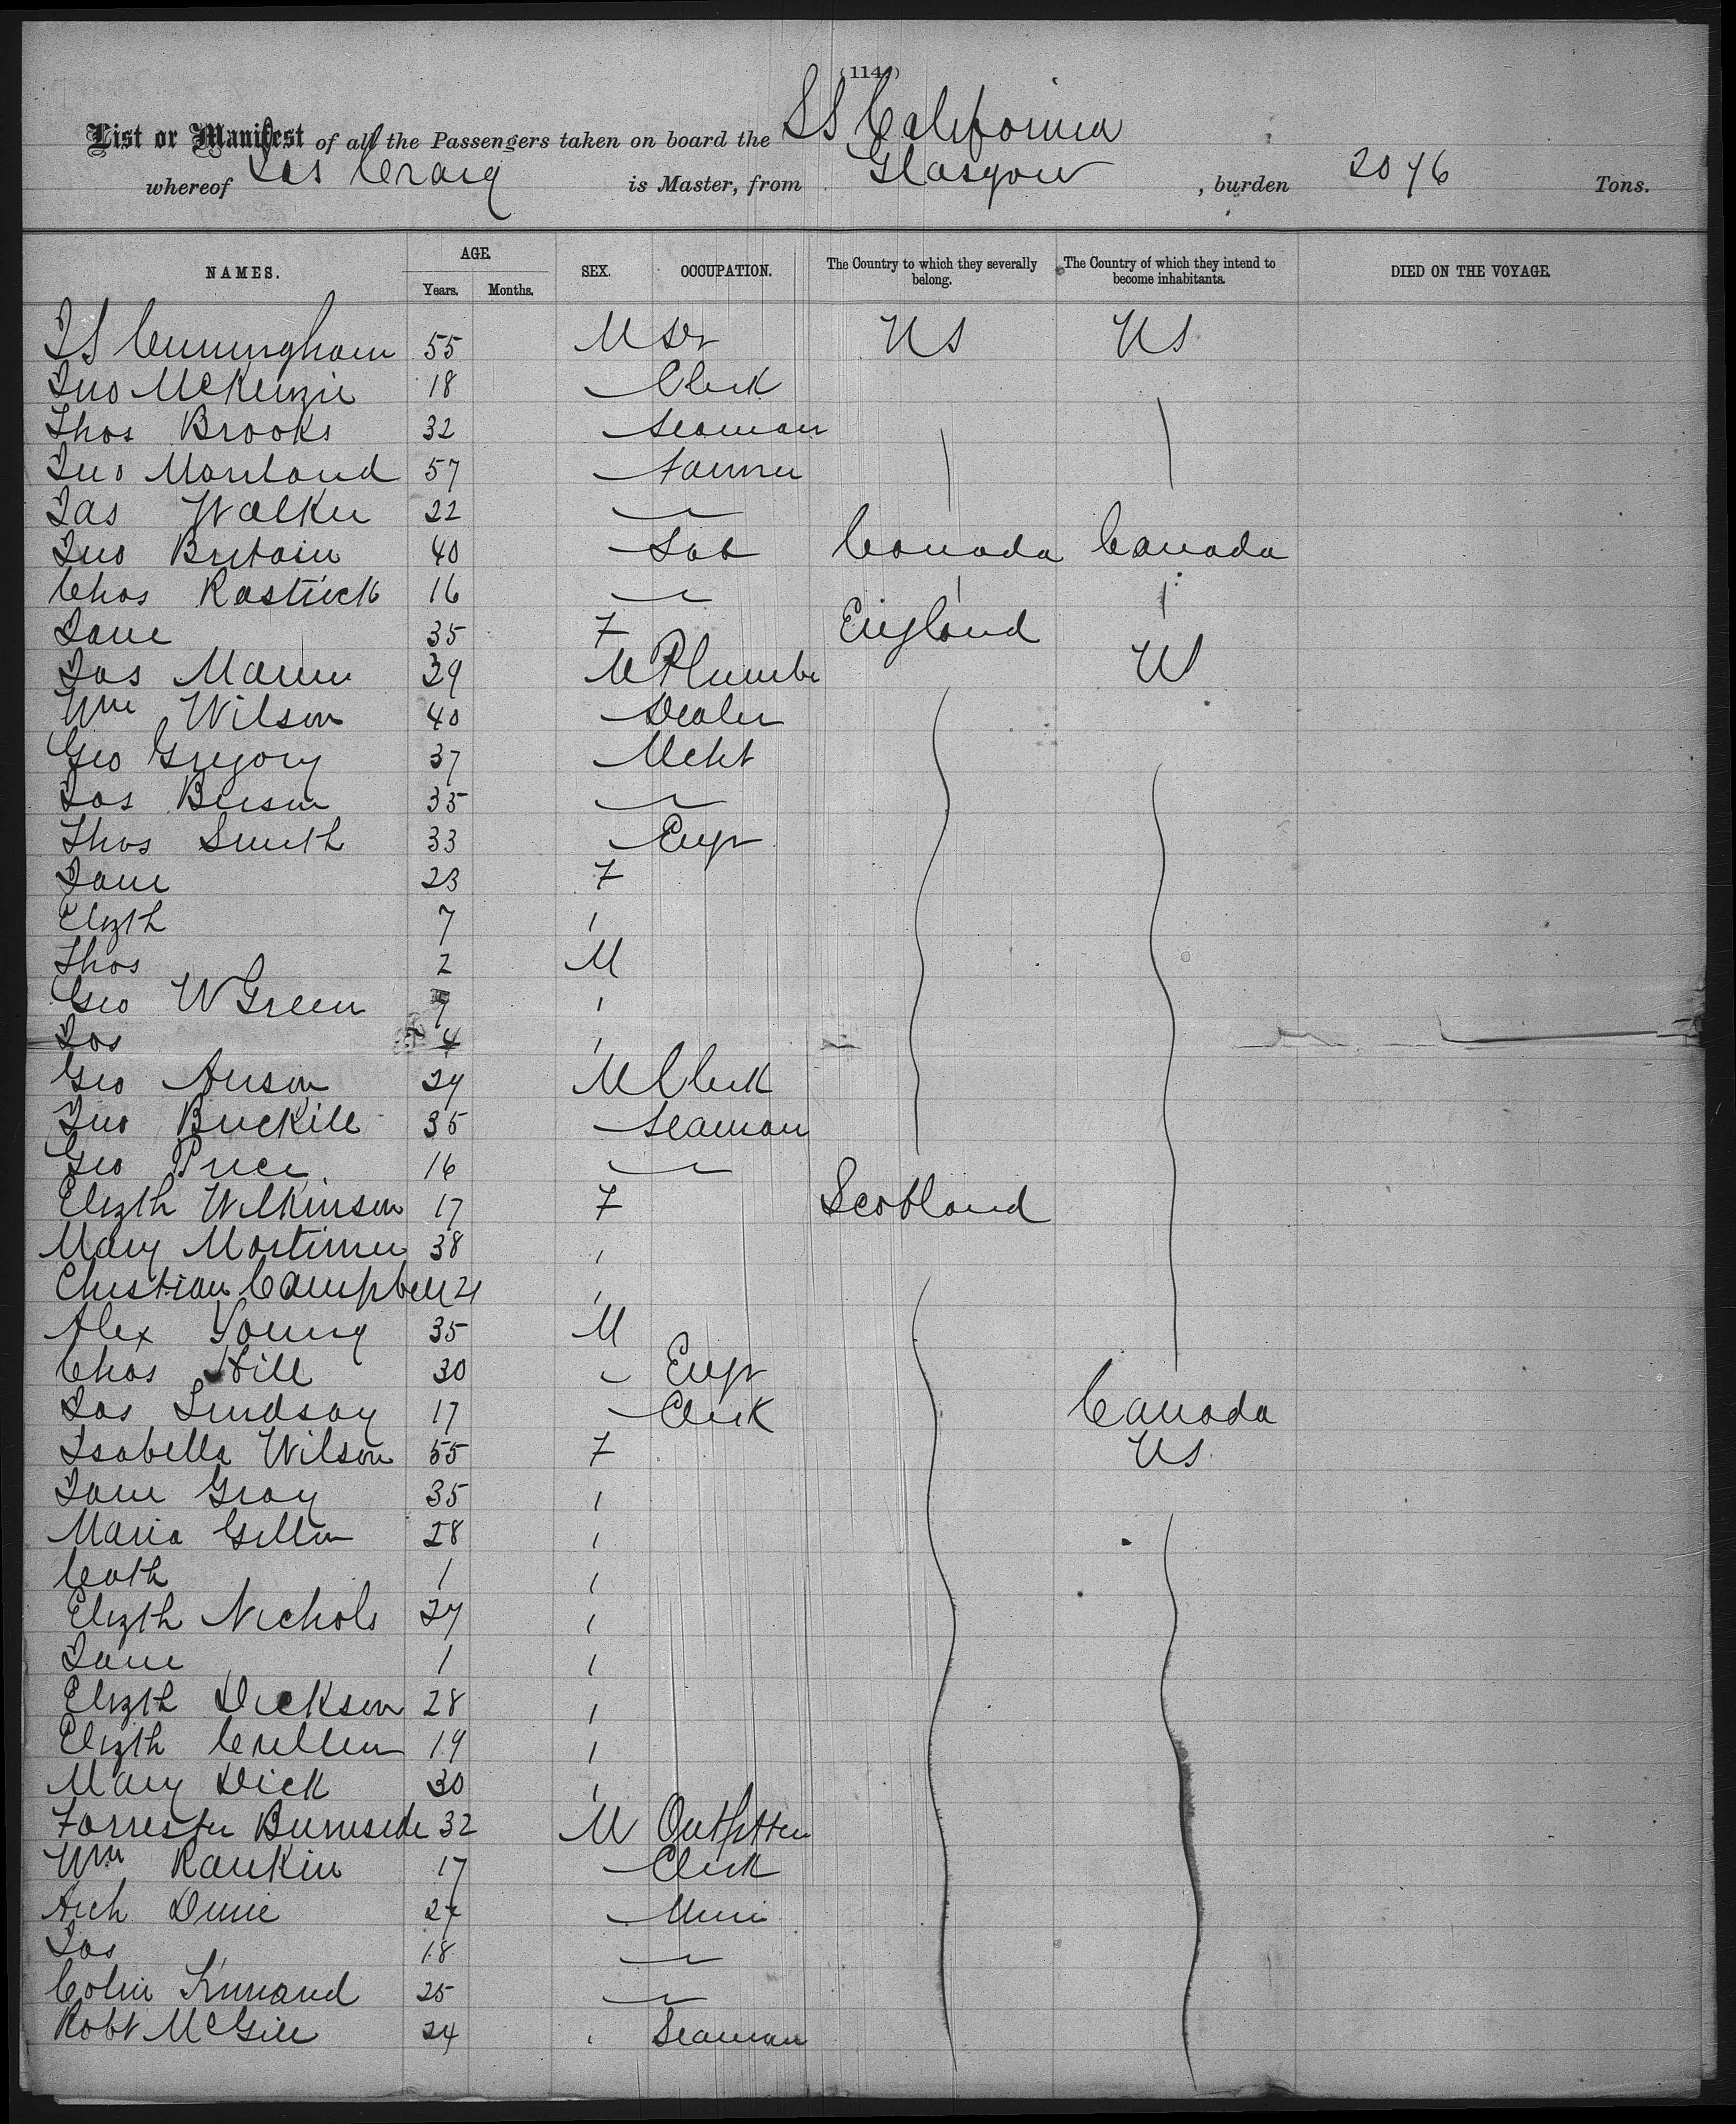 (114)
List or Manifest of all the Passengers taken on board the SS California
whereof Jas Craig is Master, from Glasgow, burden 2046 Tons.
NAMES. AGE. SEX. OCCUPATION. The Country to which they severally belong. The Country of which they intend to become inhabitants. DIED ON THE VOYAGE.
Years. Months.
Cunningham 55 M Dr US US
Jno McKenzie 18 Clerk
Thos Brooks 32 Seaman
Jno 57 Farmer
Jas Walker 22
Jno Britain 40 Lab Canada Canada
Chas Rastrick 16
Jane 35 F England
Jas 39 M Plumber US
Wm Wilson 40 Dealer
Geo Gregory 37 Mcht
Jas 35
Thos Smith 33 Engr
Jane 23 F
Elizth 7
Thos 2 M
Geo W Green 7
Jas 4
Geo Anson 24 M Clerk
Jno Buckill 35 Seaman
Geo Price 16
Elizth Wilkinson 17 F Scotland
Mary Mortimer 38
Christian Campbell 21
Alex Young 35 M
Chas Hill 30 Engr
Jas Lindsay 17 Clerk Canada
Isabella Wilson 55 F US
Jane Gray 35
Maria 28
Cath 1
Elizth Nichols 27
Jane 1
Elizth Dickson 28
Elizth Cullen 19
Mary Dick 30
Forrester Burnside 32 M Outfitter
Wm Rankin 17 Clerk
Arch 24
Jas 18
Colin Kinnard 25
Robt McGill 24 Seaman